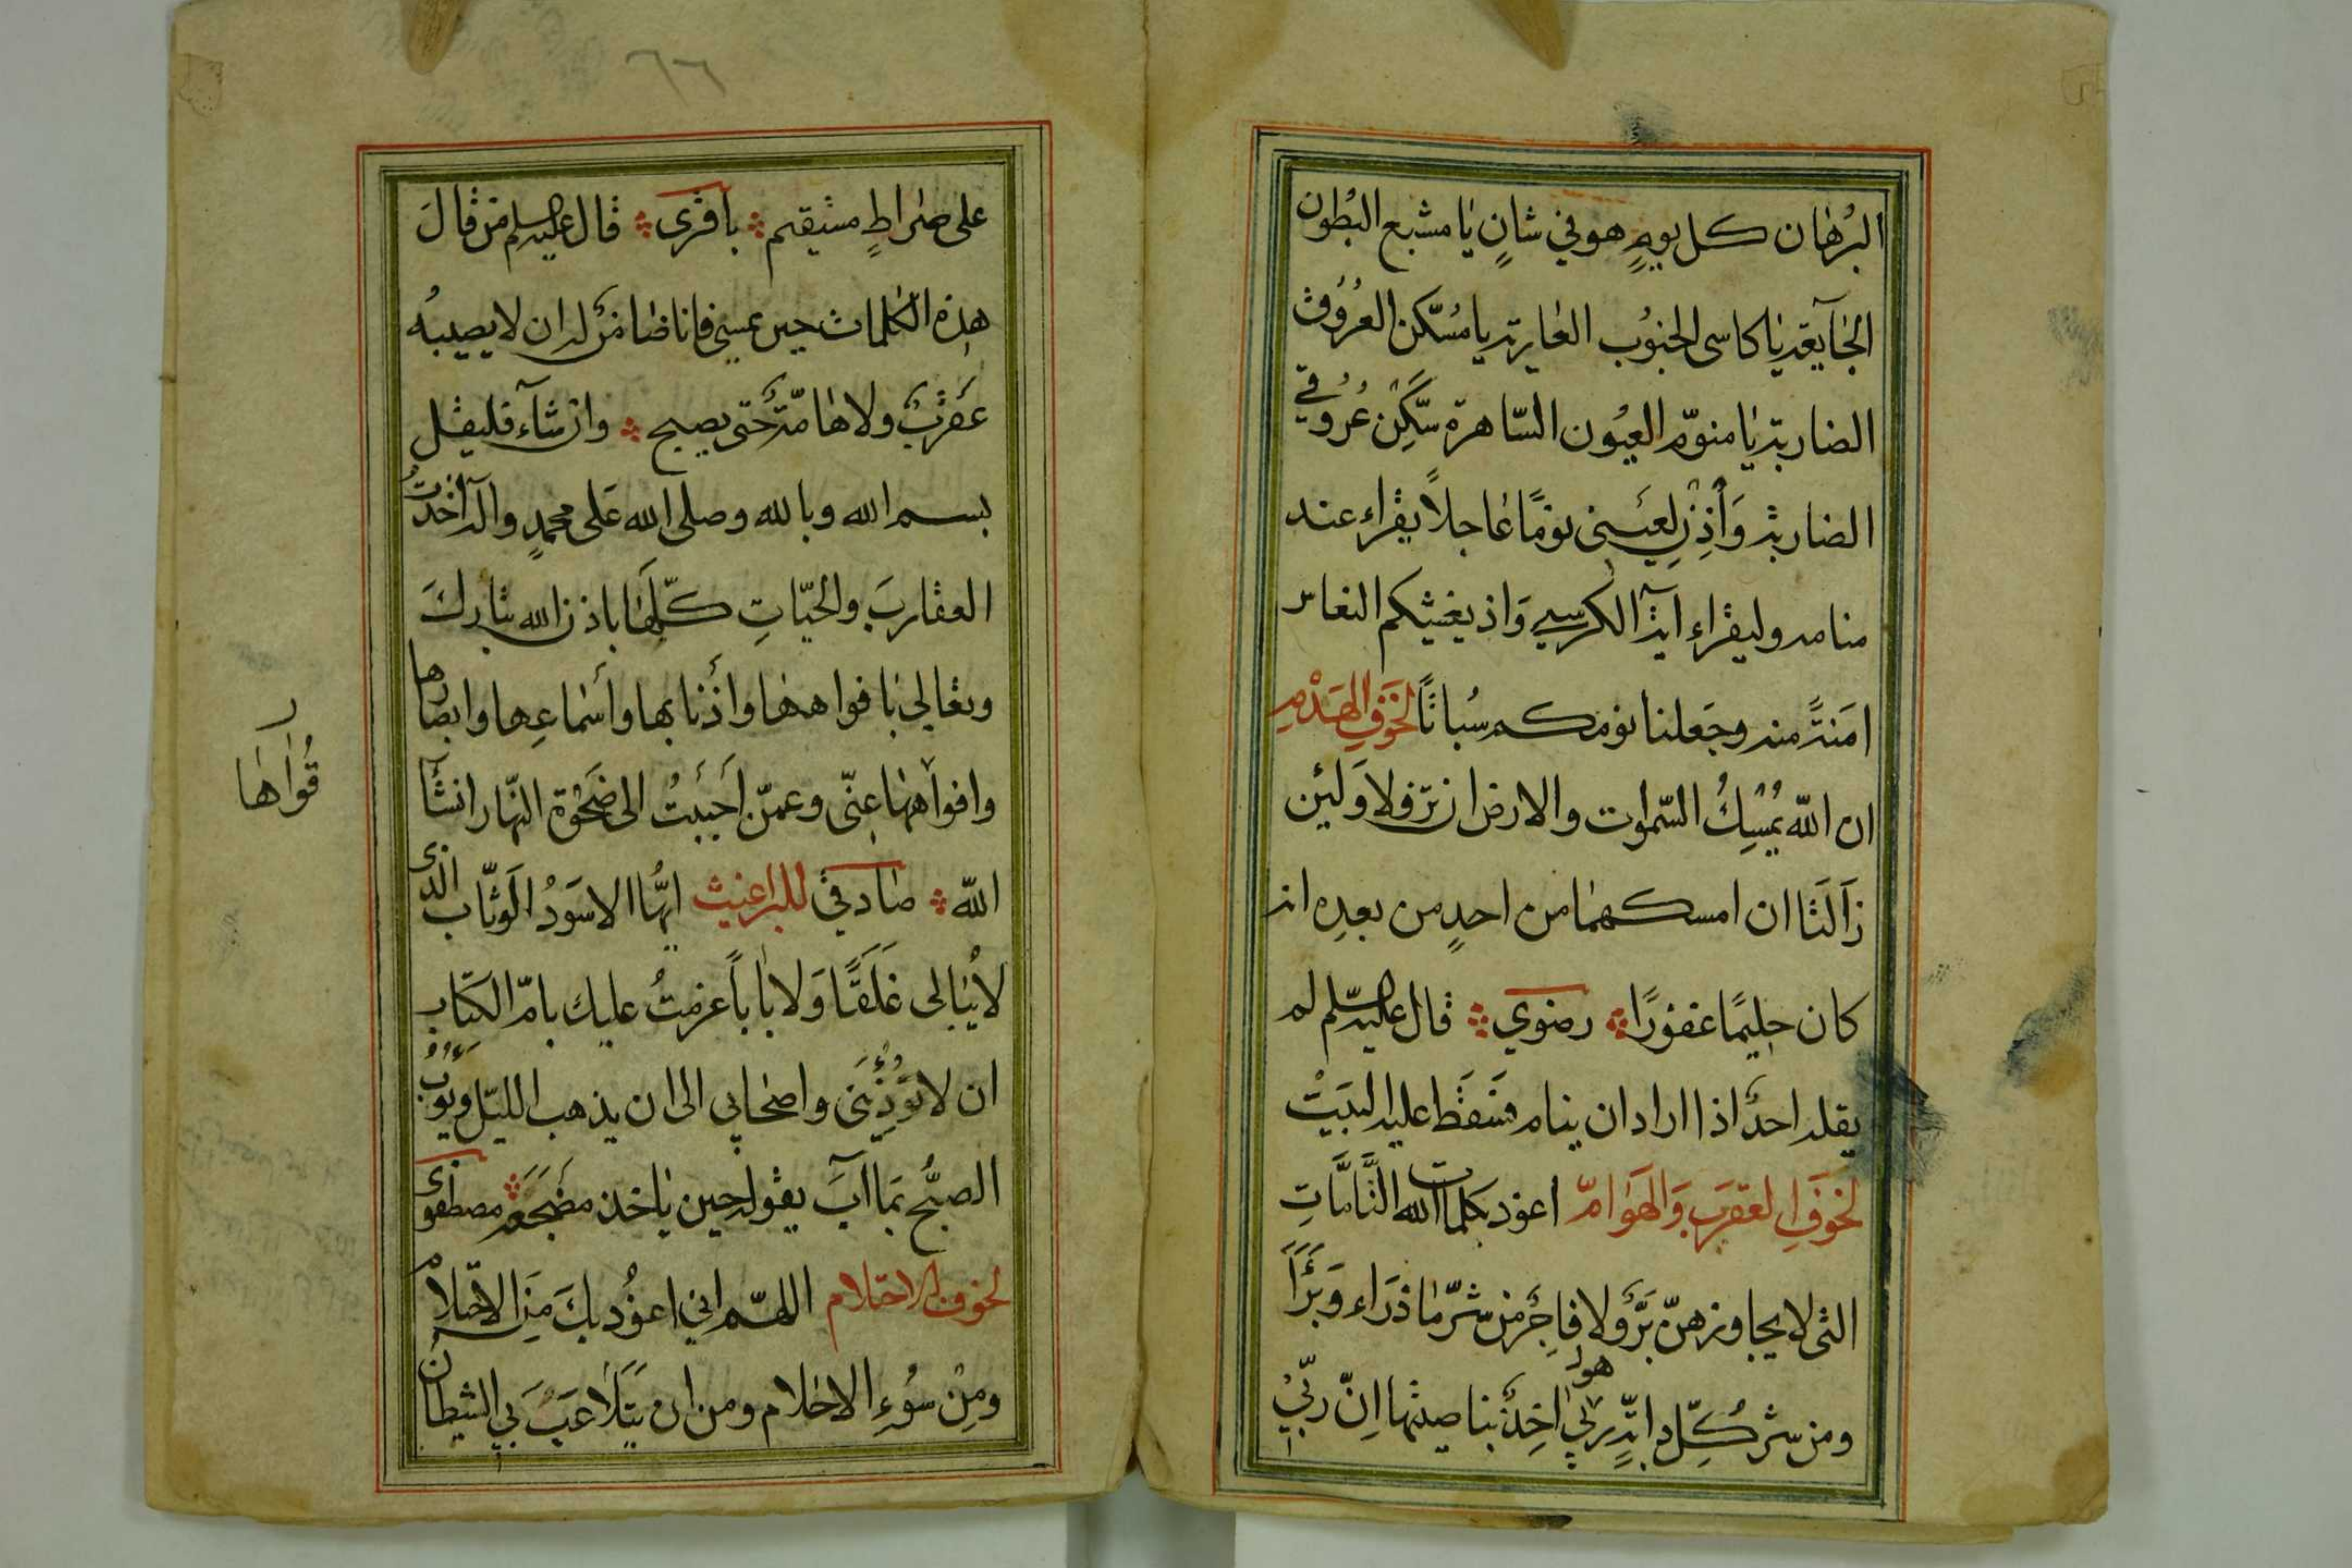 البُرهان كل يومٍ هو في شانٍ يا مشبع البُطون
الجآيعة يا كاسى الجنوُب العارية يا مُسَكّن العُرُوق
الضاربة يا منوّم العيُون السّاهرة سَكِّن عُرُوقي
الضاربة وَأذِن لِعَيني نومًا عاجلاً يقراء عند
منامه وليقراء ايةآلكرسي وَاذ يغشيكم النعاس
امَنةً منه وجَعلنا نومكم سُباتًا لخَوَفِ الهَدْمِ
ان اللّه يُمْسِكُ السّموات والارض ان تزولا وَلَئِن
زَالَتا ان امسكهما من احدٍ من بعدِه انه
كان حليمًا غفورًا رضوي قال عليه السلم لم
يقله احدٌ اذا اراد ان ينام فسَقَط عليه البَيْت
لخوفِ العقرَب وَالهَوامّ اعوذ بكلمات الله التَّامَّاتِ
التى لا يجاوزهنّ بَرٌّ ولا فاجِرٌ من شرّ ما ذرَاء وَبَرَأَ
ومن شر كُلِّ دابّةٍ ربي هو اخِذٌ بناصيتها اِنّ ربّيْ
٦٦
على صراطٍ مستقيم باقرى قال عليه السلم من قالَ
هذه الكلمات حين يمسي فانا ضامنٌ له ان لا يصيبهُ
عَقربٌ ولا هامّةٌ حَتى يصبح وان شآء فليقل
بسم الله وبالله وصلى الله عَلى محمدٍ وآله اخذتُ
العقاربَ والحيّاتِ كلّها باذن الله تبارك
وتعالي بافواهها وأذنابها وأسماعِها وابصارها
وافواهها عنّى وعمّن اَحببتُ الى ضَحْوَة النّهار انشآ
اللّه صادقي للبراغيث ايّها الاسوَدُ الوَثّاب الذى
لا يُبالى غلَقًا وَلا باباً عزمتُ عليك بامّ الكِتاب
ان لا تؤذيَنى واصحابي الى ان يذهب الليل ويَؤُبَ
الصبُّح بما آبَ يقوله حين ياخذ مضجَعَه مصطفوى
لخوف الاحتلام اللهّم اني اعوُذ بكَ مِنَ الاحتلام
ومِنْ سُوءِ الاحلام ومن ان يَتَلاعَبَ بي الشيطان
قُواها